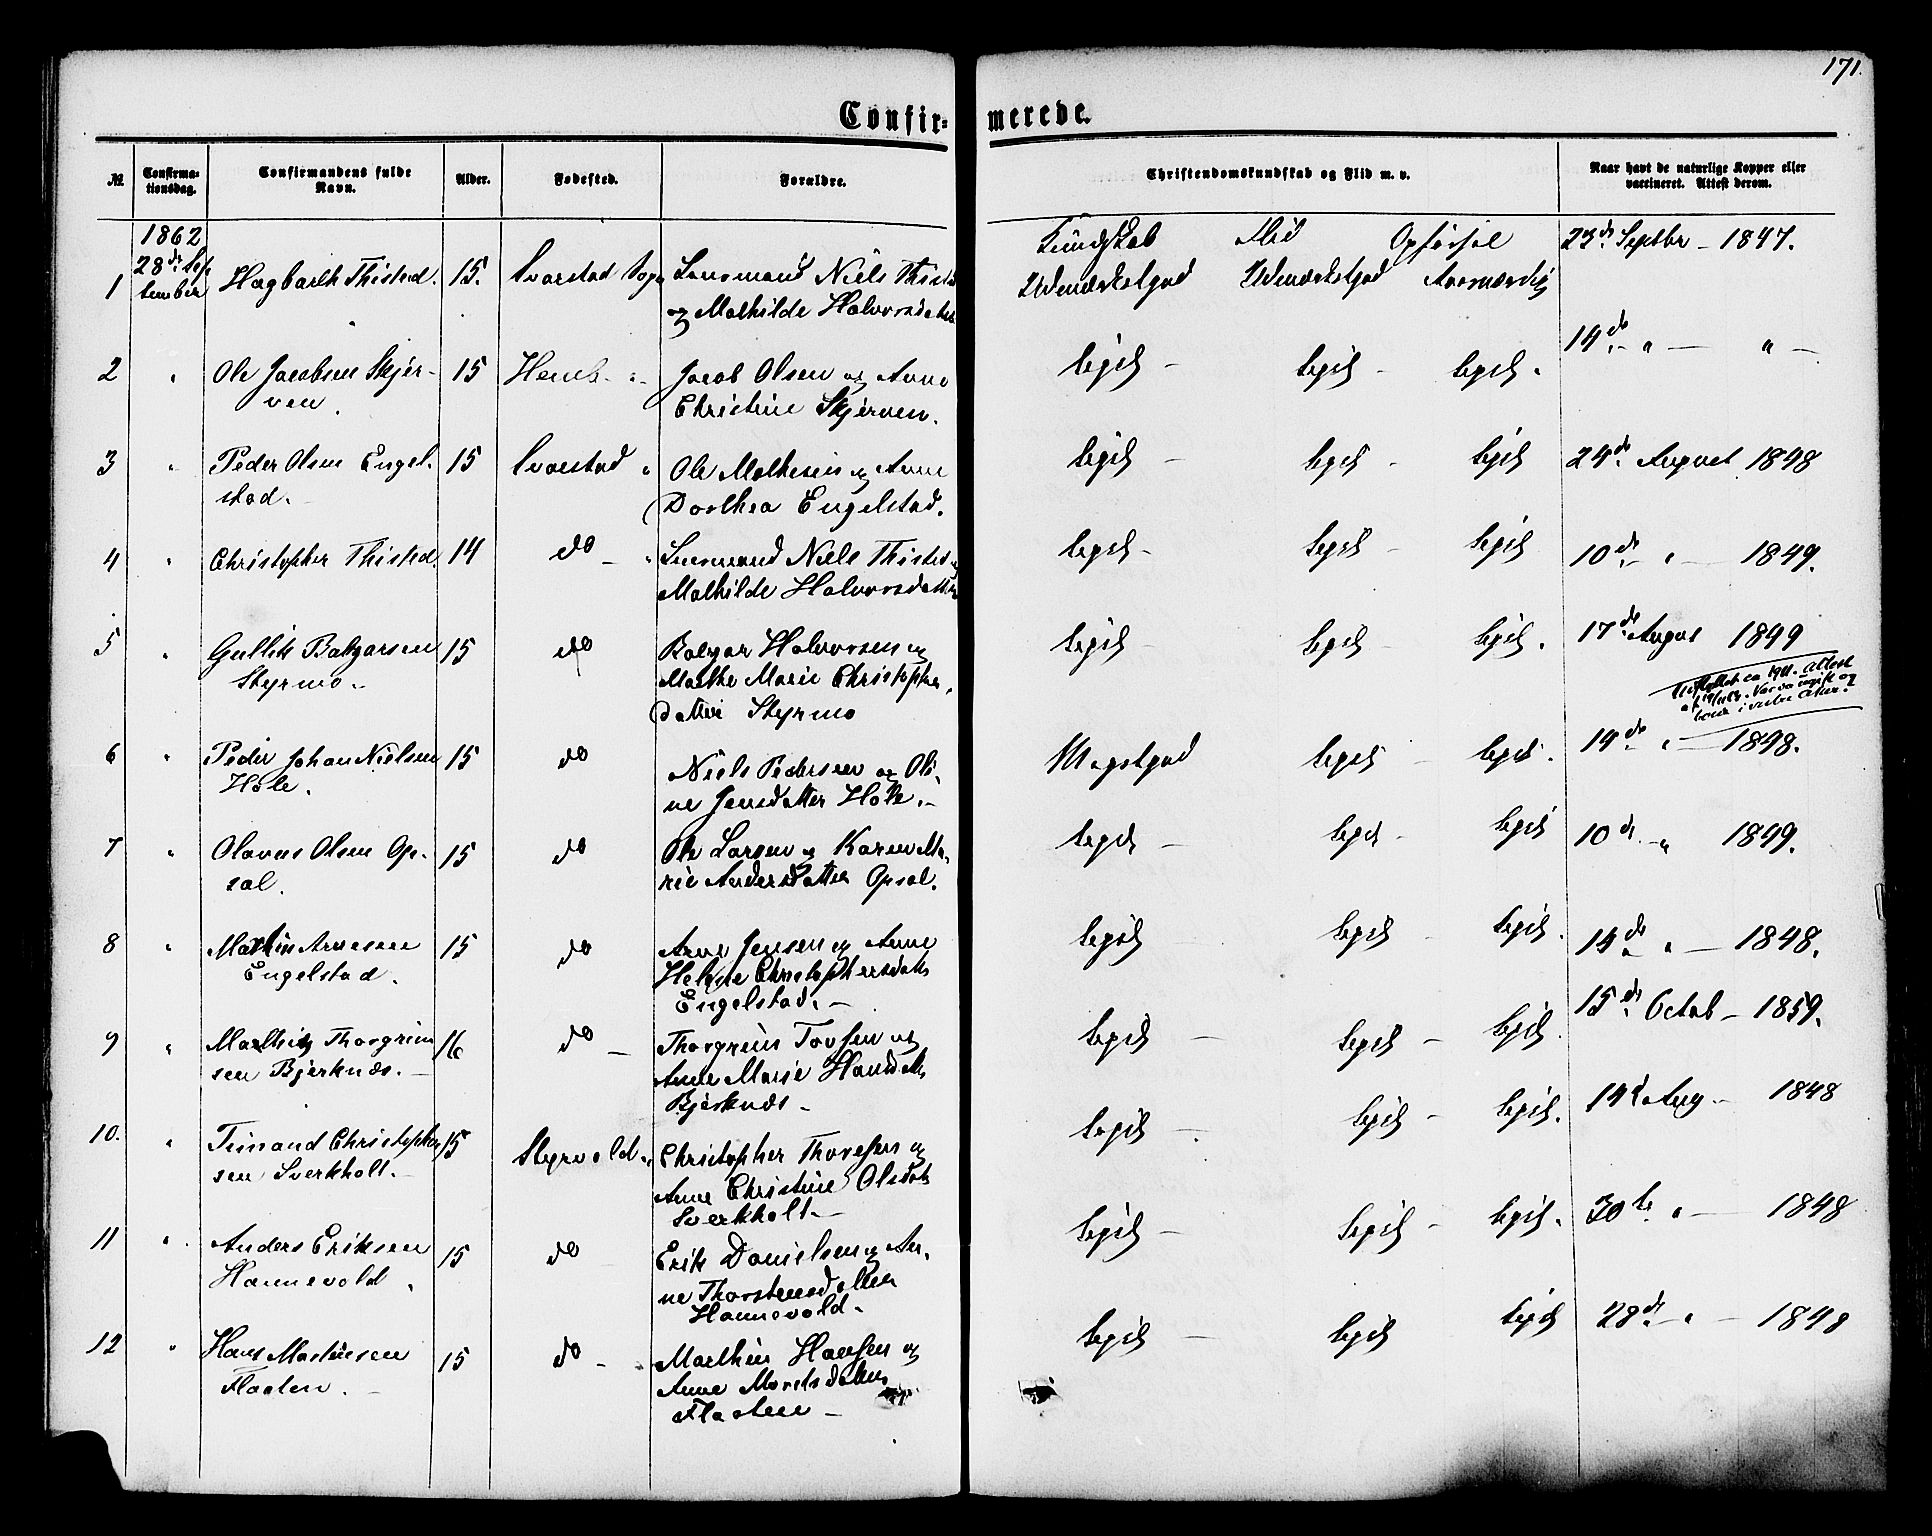 171.
Confir-
merede.
№
Confirma-
tionsdag.
Confirmandens fulde
Navn.
Alder.
Fødested.
Forældre.
Christendomskundskab og Flid m. v.
Naar havt de naturlige Kopper eller
vaccineret. Attest derom.
1862
28de Sep
tember
Kundskab Flid Opførsel
1 Hagbarth Thisted. 15. Svarstad Sogn Lensmand Niels Thisted
og Mathilde Halvorsdatter
Udmærketgod Udmærketgod 23de Septbr - 1847.
2 " Ole Jacobsen Skjer-
ven. 15 Hems - " - Jacob Olsen og Anne
Christine Skjerven.
ligel - ligel - ligel. 14de - " - " -
3 " Peder Olsen Engel-
stad. 15 Svarstad " Ole Mathesen og Anne
Dorthea Engelstad.
ligel - ligel - ligel 24de August 1848
4 " Christopher Thisted 14 do - " Lensmand Niels Thisted og
Mathilde Halvorsdatter
ligel - ligel - ligel 10de - " - 1849.
5 " Gullik Balzarsen
Styrmo. 15 do Balzar Halvorsen og
Marthe Marie Christopher
datter Styrmo
ligel - ligel - ligel. 17de August 1849
6 " Peder Johan Nielsen
Hole. 15 do Niels Pedersen og Oli-
ne Jensdatter Hole. -
Megetgod ligel - ligel. 14de " - 1848.
7 " Olavus Olsen Op-
sal. 15 do Ole Larsen og Karen Ma-
rie Andersdatter Opsal.
ligel - ligel - ligel 10de - " 1849.
8 " Mathin Arnesen
Engelstad. 15 do Arne Jensen og Anne
Helene Christophersdatr
Engelstad. -
ligel - ligel - ligel. 14de " - 1848.
9 " Mathis Thorgrim
sen Bjerknæs. - 16 do - Thorgrim Tovsen og
Anne Marie Hansdatr
Bjerknæs -
ligel - ligel - ligel. 15de Octob - 1859.
10. " Christopher
sen Sverkholt. - 15 Styrvold " Christopher Thovesen og
Anne Christine Olsdatr
Sverkholt. -
ligel - ligel - ligel. 14de Aug - 1848
11 " Anders Eriksen
Hannevold. 15 do Erik Danielsen og An-
ne Thorstensdatter
Hannevold -
ligel - ligel - ligel. 30te " - 1848
12 " Hans Mathisen
Flaaten. - 15 do - Mathis Hansen og
Anne
Flaaten -
ligel - ligel ligel 28de - " - 1848